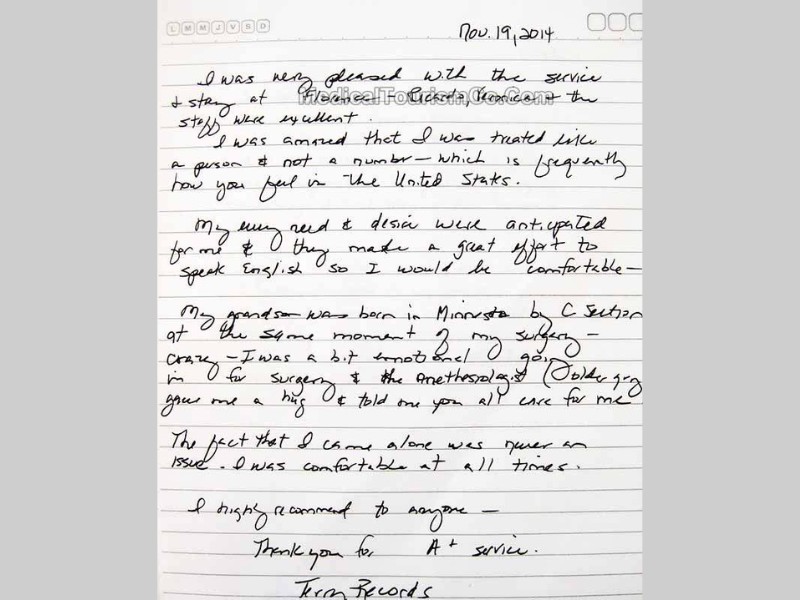 L M M J V S D
Nov. 19, 2014
I was very pleased with the service
& stay at Florence Ricardo, & the
MedicalTourismCo.Com
staff were excellent.
I was amazed that I was treated like
a person & not a number – which is frequently
how you feel in the United States.
My every need & desire were anticipated
for me & they made a great effort to
speak English so I would be comfortable –
My grandson was born in Minnesota by C Section
at the same moment of my surgery –
crazy – I was a bit emotional going
in for surgery & the Anethesiologist (older guy
gave me a hug & told me you all care for me
The fact that I came alone was never an
issue. I was comfortable at all times.
I highly recommend to anyone –
Thank you for A+ service.
Terry Records